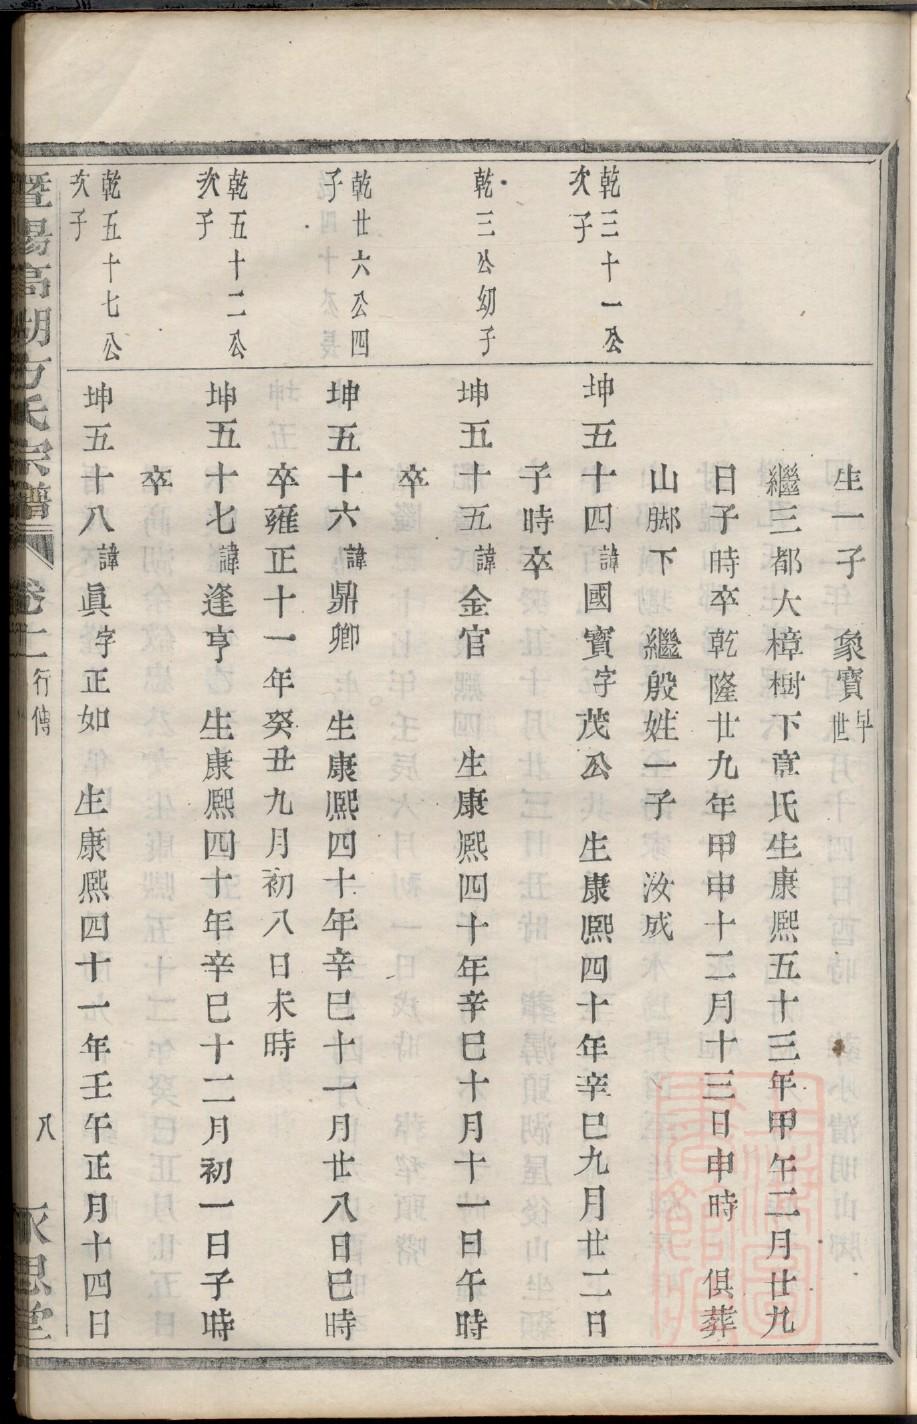 生一子　象寶早世
繼三都大樟樹下章氏生康熙五十三年甲午二月廿九
日子時卒乾隆廿九年甲申十二月十三日申時　俱葬
山脚下　繼殷姓一子　汝成
乾三十一公
次子
坤五十四諱國寳字茂公　生康熙四十年辛巳九月廿二日
子時卒
乾三公幼子
坤五十五諱金官　生康熙四十年辛巳十月十一日午時
卒
乾廿六公四
子
坤五十六諱鼎卿　生康熙四十年辛巳十一月廿八日巳時
卒雍正十一年癸丑九月初八日未時
乾五十二公
次子
坤五十七諱逢亨　生康熙四十年辛巳十二月初一日子時
卒
乾五十七公
次子
坤五十八諱眞字正如　生康熙四十一年壬午正月十四日
暨陽高湖方氏宗譜　行傳　八　思堂